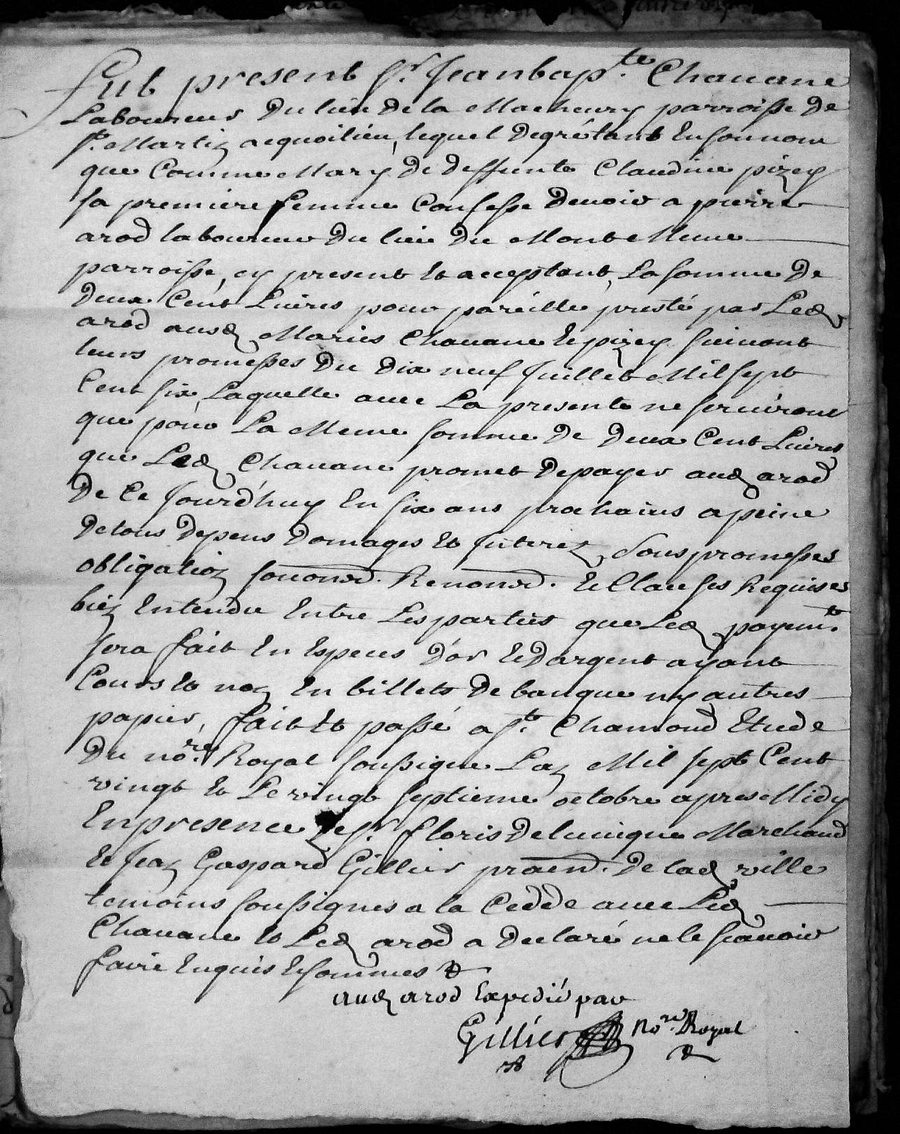 Fut present Sr. Jeanbapte. Chavane
Laboureur du lieu de la Macheury parroisse de
St. Martin acquoilieu, lequel degré tant en son nom
que comme Mary de deffunte Claudine pizey
sa premiere femme confesse devoir a pierre
arod laboureur du lieu du Mont
parroisse, cy present et acceptant, La somme de
deux Cent Livres pour pareille presté par Led.
arod ausd. Mariés Chavane et pizey suivant
leurs promesses du dix neuf Juillet Mil sept
Cent six Laquelle avec La presente ne serviront
que pour La Meme somme de deux Cent Livres
que Led. Chavane promet de payer aud. arod
de Ce Jourd'huy En six ans prochains a peine
de tous depens domages et Interez, Sous promesses
obligation soumond. Renond. et Clauses Requises
bien Entendu Entre Les parties que Led. payemt.
sera fait En Especes d'or et dargent ayant
Cours et non En billets de banque ny autres
papier, fait et passé a St. Chamond Etude
du nore. Royal soussigné Lan Mil sept Cent
vingt et Le vingt septieme octobre apres Midy
En presence de Sr. floris Marchand
et Jean Gaspard Gillier praend. de lad. ville
temoins soussignes a la Cedde avec Led.
Chavane et Led. arod a declaré ne le scavoir
faire Enquis et sommes
aud. arod Expedié par
Gillier Nore. Royal